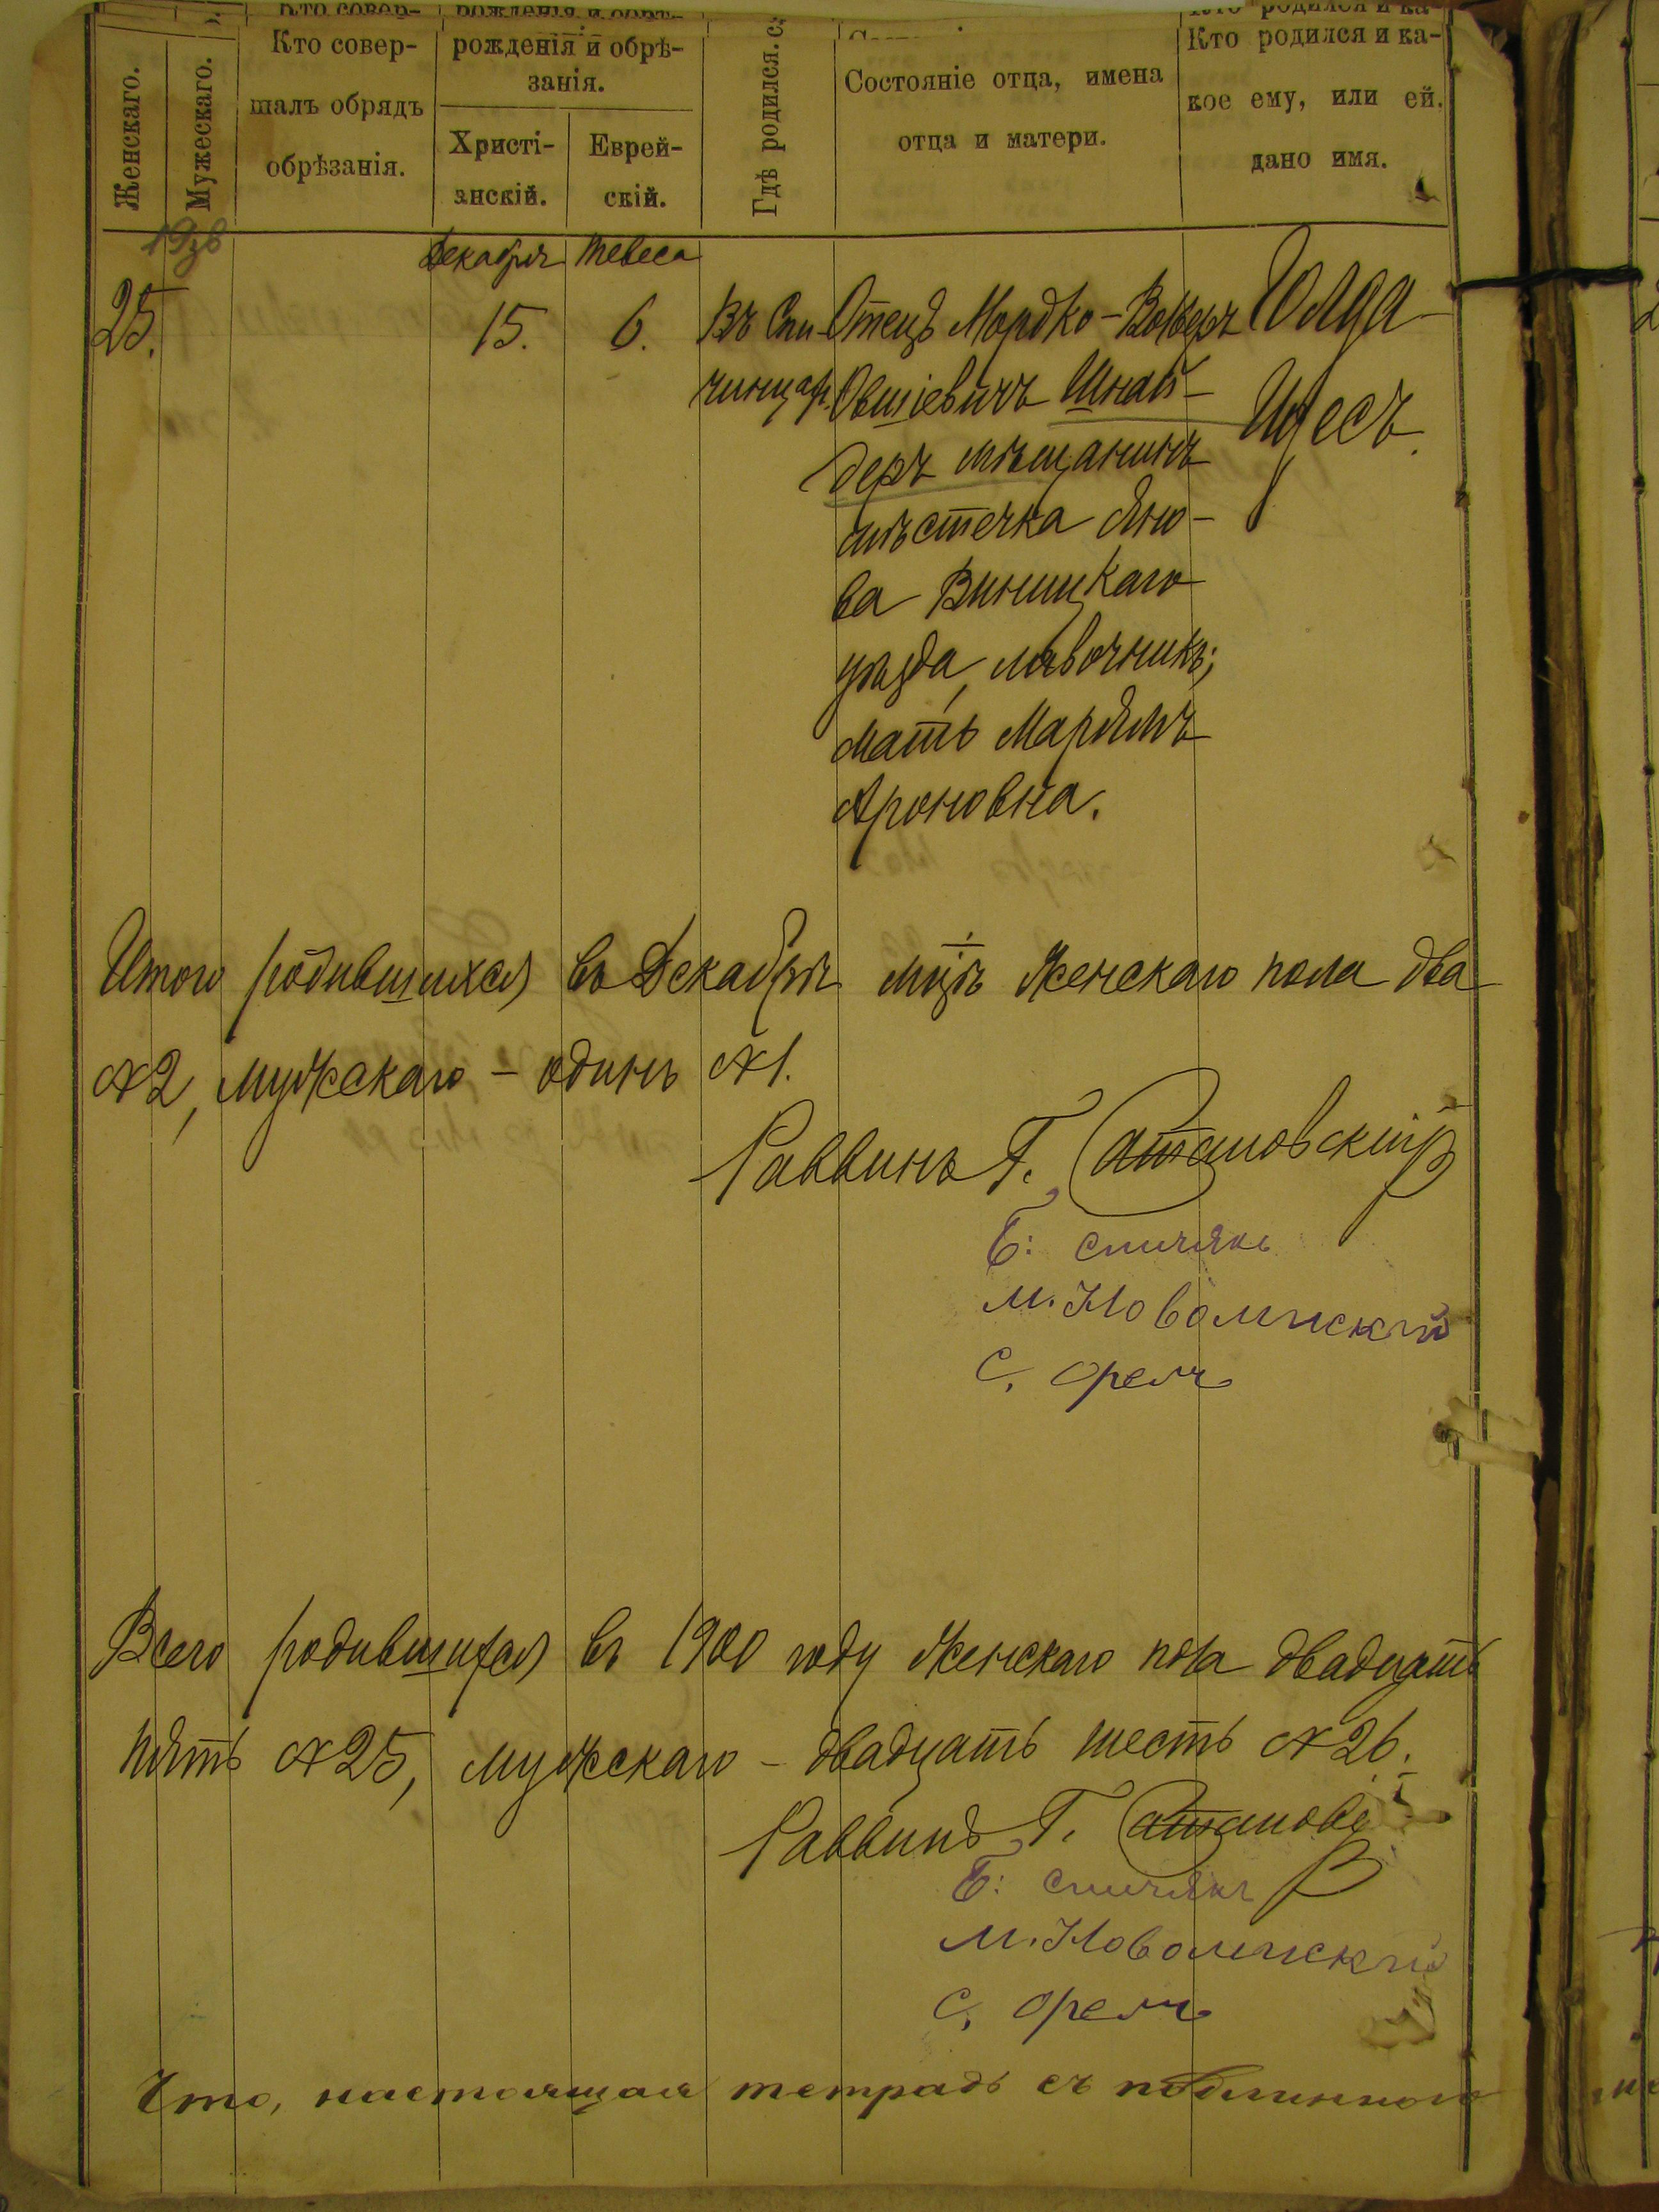 Женскаго.
Мужескаго.
Кто совер-
шалъ обрядъ
обрѣзанія.
рожденія и обрѣ-
занія.
Христі-
анскій.
Еврей-
скій.
Гдѣ родился.
Состояніе отца, имена
отца и матери.
Кто родился и ка-
кое ему, или ей.
дано имя.
Декабря Тевеса
25. 15. 6. Въ Спи- Отецъ Мордко-Волверъ
чинцах. Овшіевичъ Шнай-
деръ мѣщанинъ
мѣстечка Яно-
ва Виницкаго
уѣзда, лавочникъ;
мать Марьямъ
Ароновна.
Итого родившихся въ Декабрѣ мцѣ женскаго пола два
№2, мужескаго - одинъ №1.
Раввинъ Г. Сатановскій
Б: Спичякъ
М. Новоминскій
С. Орелъ
Всего родившихся въ 1900 году женскаго пола двадцать
пять №25, мужскаго - двадцать шесть №26.
Раввинъ Г. Сатановс
Б: Спичякъ
М. Новоминскій
С. Орелъ
Что, настоящая тетрадь съ подлинною